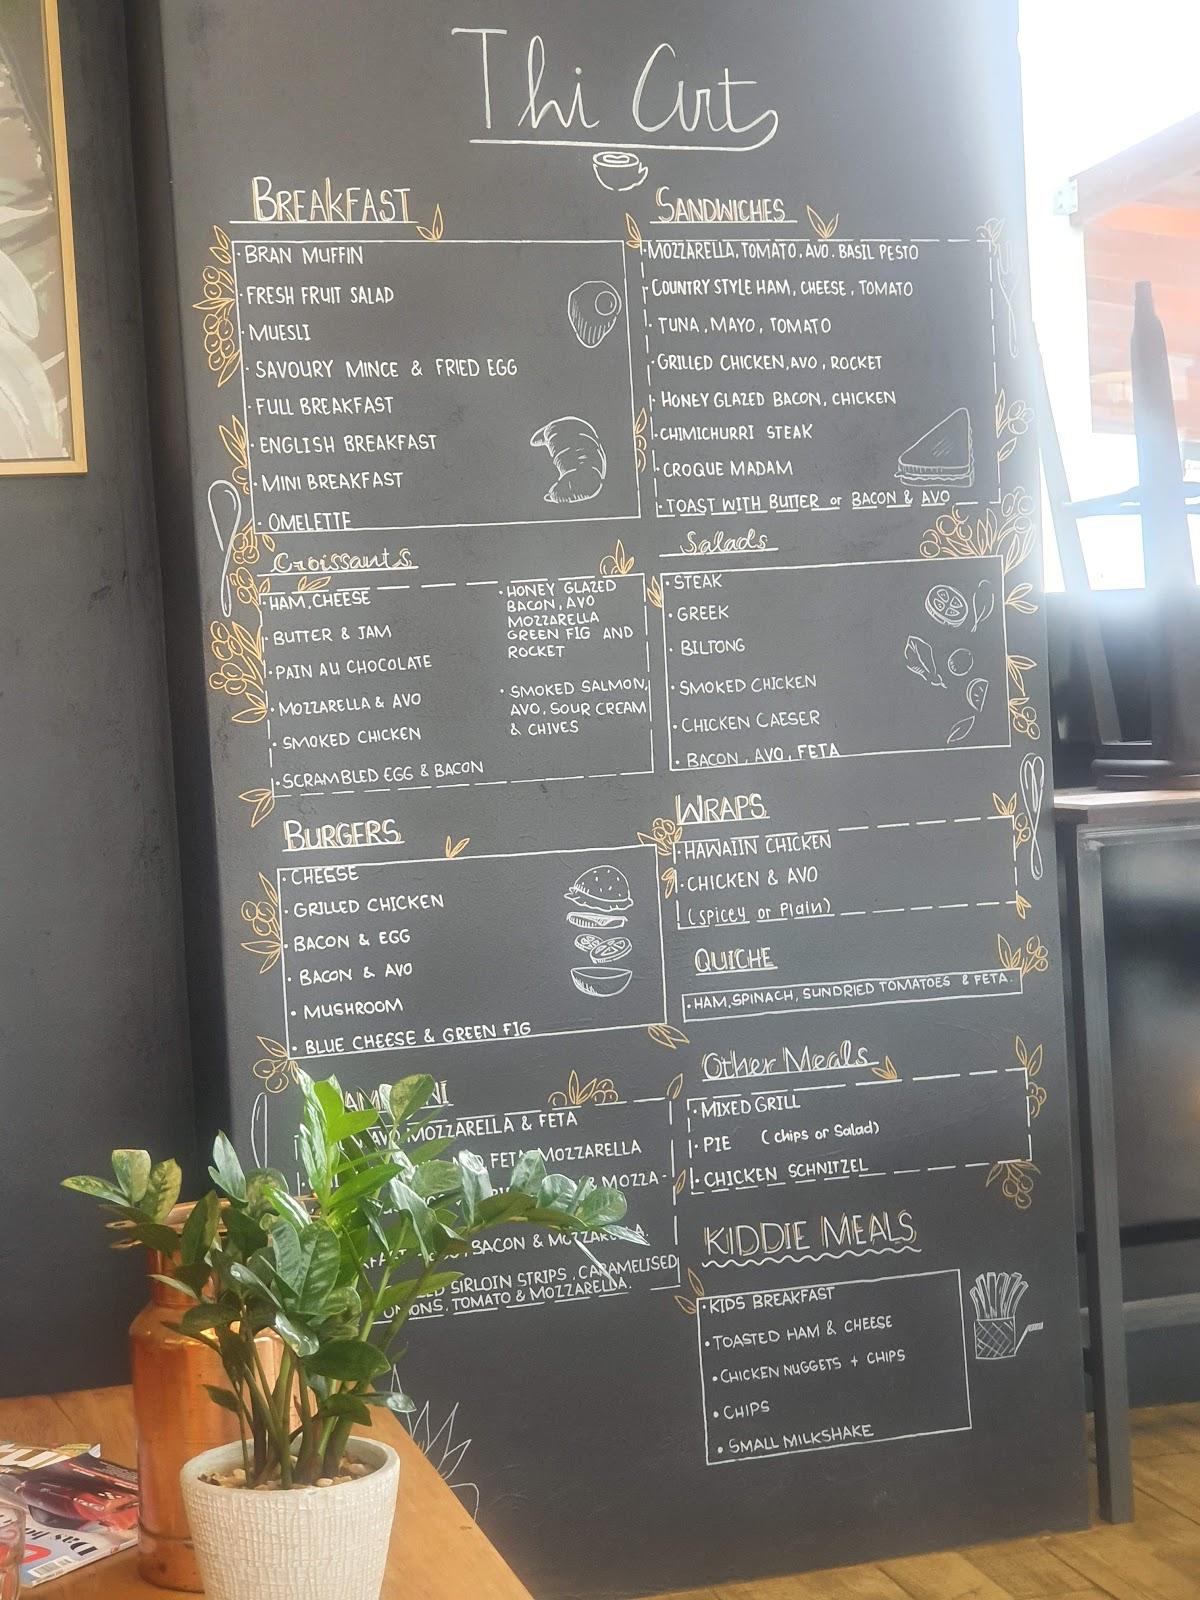 Thi Art
BREAKFAST
BRAN MUFFIN
FRESH FRUIT SALAD
MUESLI
SAVOURY MINCE & FRIED EGG
FULL BREAKFAST
ENGLISH BREAKFAST
MINI BREAKFAST
OMELETTE
SANDWICHES
MOZZARELLA, TOMATO, AVO, BASIL PESTO
COUNTRY STYLE HAM, CHEESE, TOMATO
TUNA, MAYO, TOMATO
GRILLED CHICKEN, AVO, ROCKET
HONEY GLAZED BACON, CHICKEN
CHIMICHURRI STEAK
CROQUE MADAM
TOAST WITH BUTTER or BACON & AVO
Croissants
HAM, CHEESE
BUTTER & JAM
PAIN AU CHOCOLATE
MOZZARELLA & AVO
SMOKED CHICKEN
SCRAMBLED EGG & BACON
HONEY GLAZED
BACON, AVO
MOZZARELLA
GREEN FIG AND
ROCKET
SMOKED SALMON,
AVO, SOUR CREAM
& CHIVES
Salads
STEAK
GREEK
BILTONG
SMOKED CHICKEN
CHICKEN CAESER
BACON, AVO, FETA
BURGERS
CHEESE
GRILLED CHICKEN
BACON & EGG
BACON & AVO
MUSHROOM
BLUE CHEESE & GREEN FIG
WRAPS
HAWAIIN CHICKEN
CHICKEN & AVO
(Spicey or Plain)
QUICHE
HAM, SPINACH, SUNDRIED TOMATOES & FETA.
AVO, MOZZARELLA & FETA
FETA, MOZZARELLA
& MOZZA-
BACON & MOZZARELLA.
SIRLOIN STRIPS, CARAMELISED
ONIONS, TOMATO & MOZZARELLA.
Other Meals
MIXED GRILL
PIE (chips or Salad)
CHICKEN SCHNITZEL
KIDDIE MEALS
KIDS BREAKFAST
TOASTED HAM & CHEESE
CHICKEN NUGGETS + CHIPS
CHIPS
SMALL MILKSHAKE